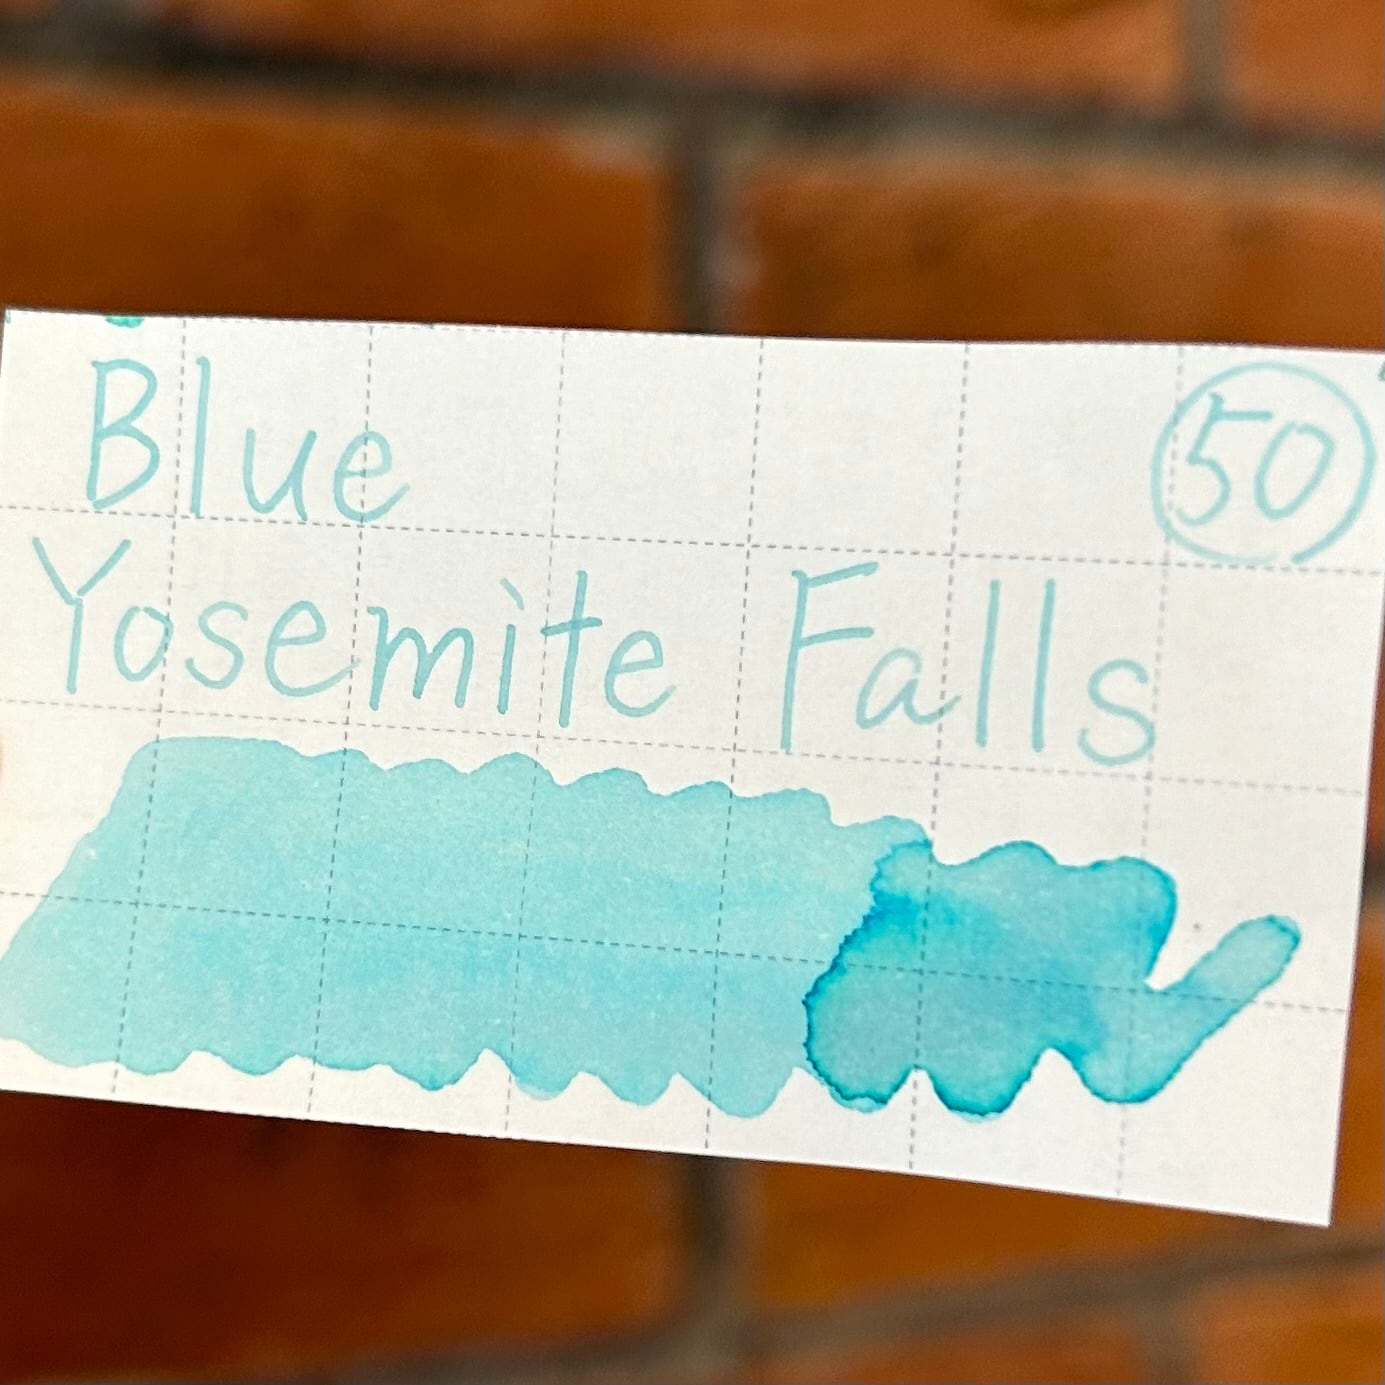 Blue 50
Yosemite Falls